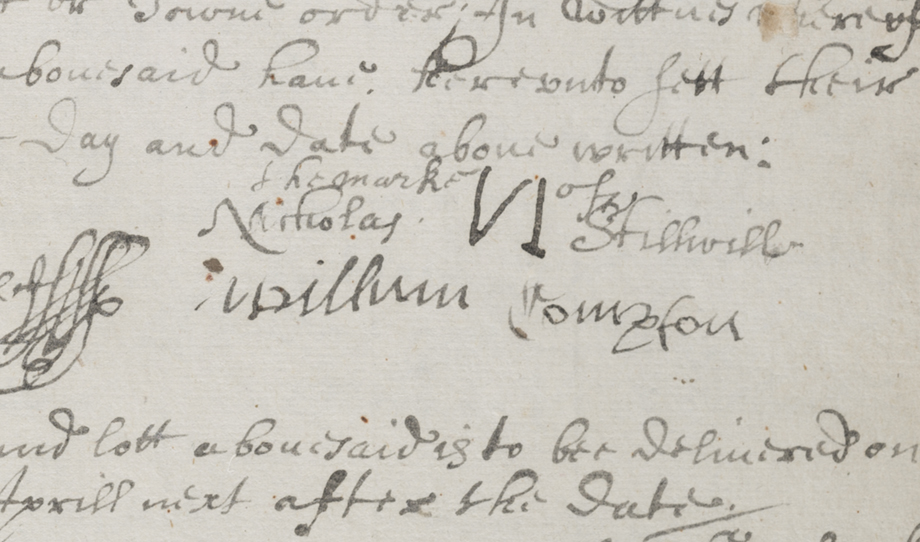 or Towne order; In Wittnes whereof
abouesaid haue hereunto sett their
Day and Date aboue written:
the marke of
Nicholas N Stillwill
willium Compton
and lott abouesaid is to bee deliuered on
Aprill next after the Date.